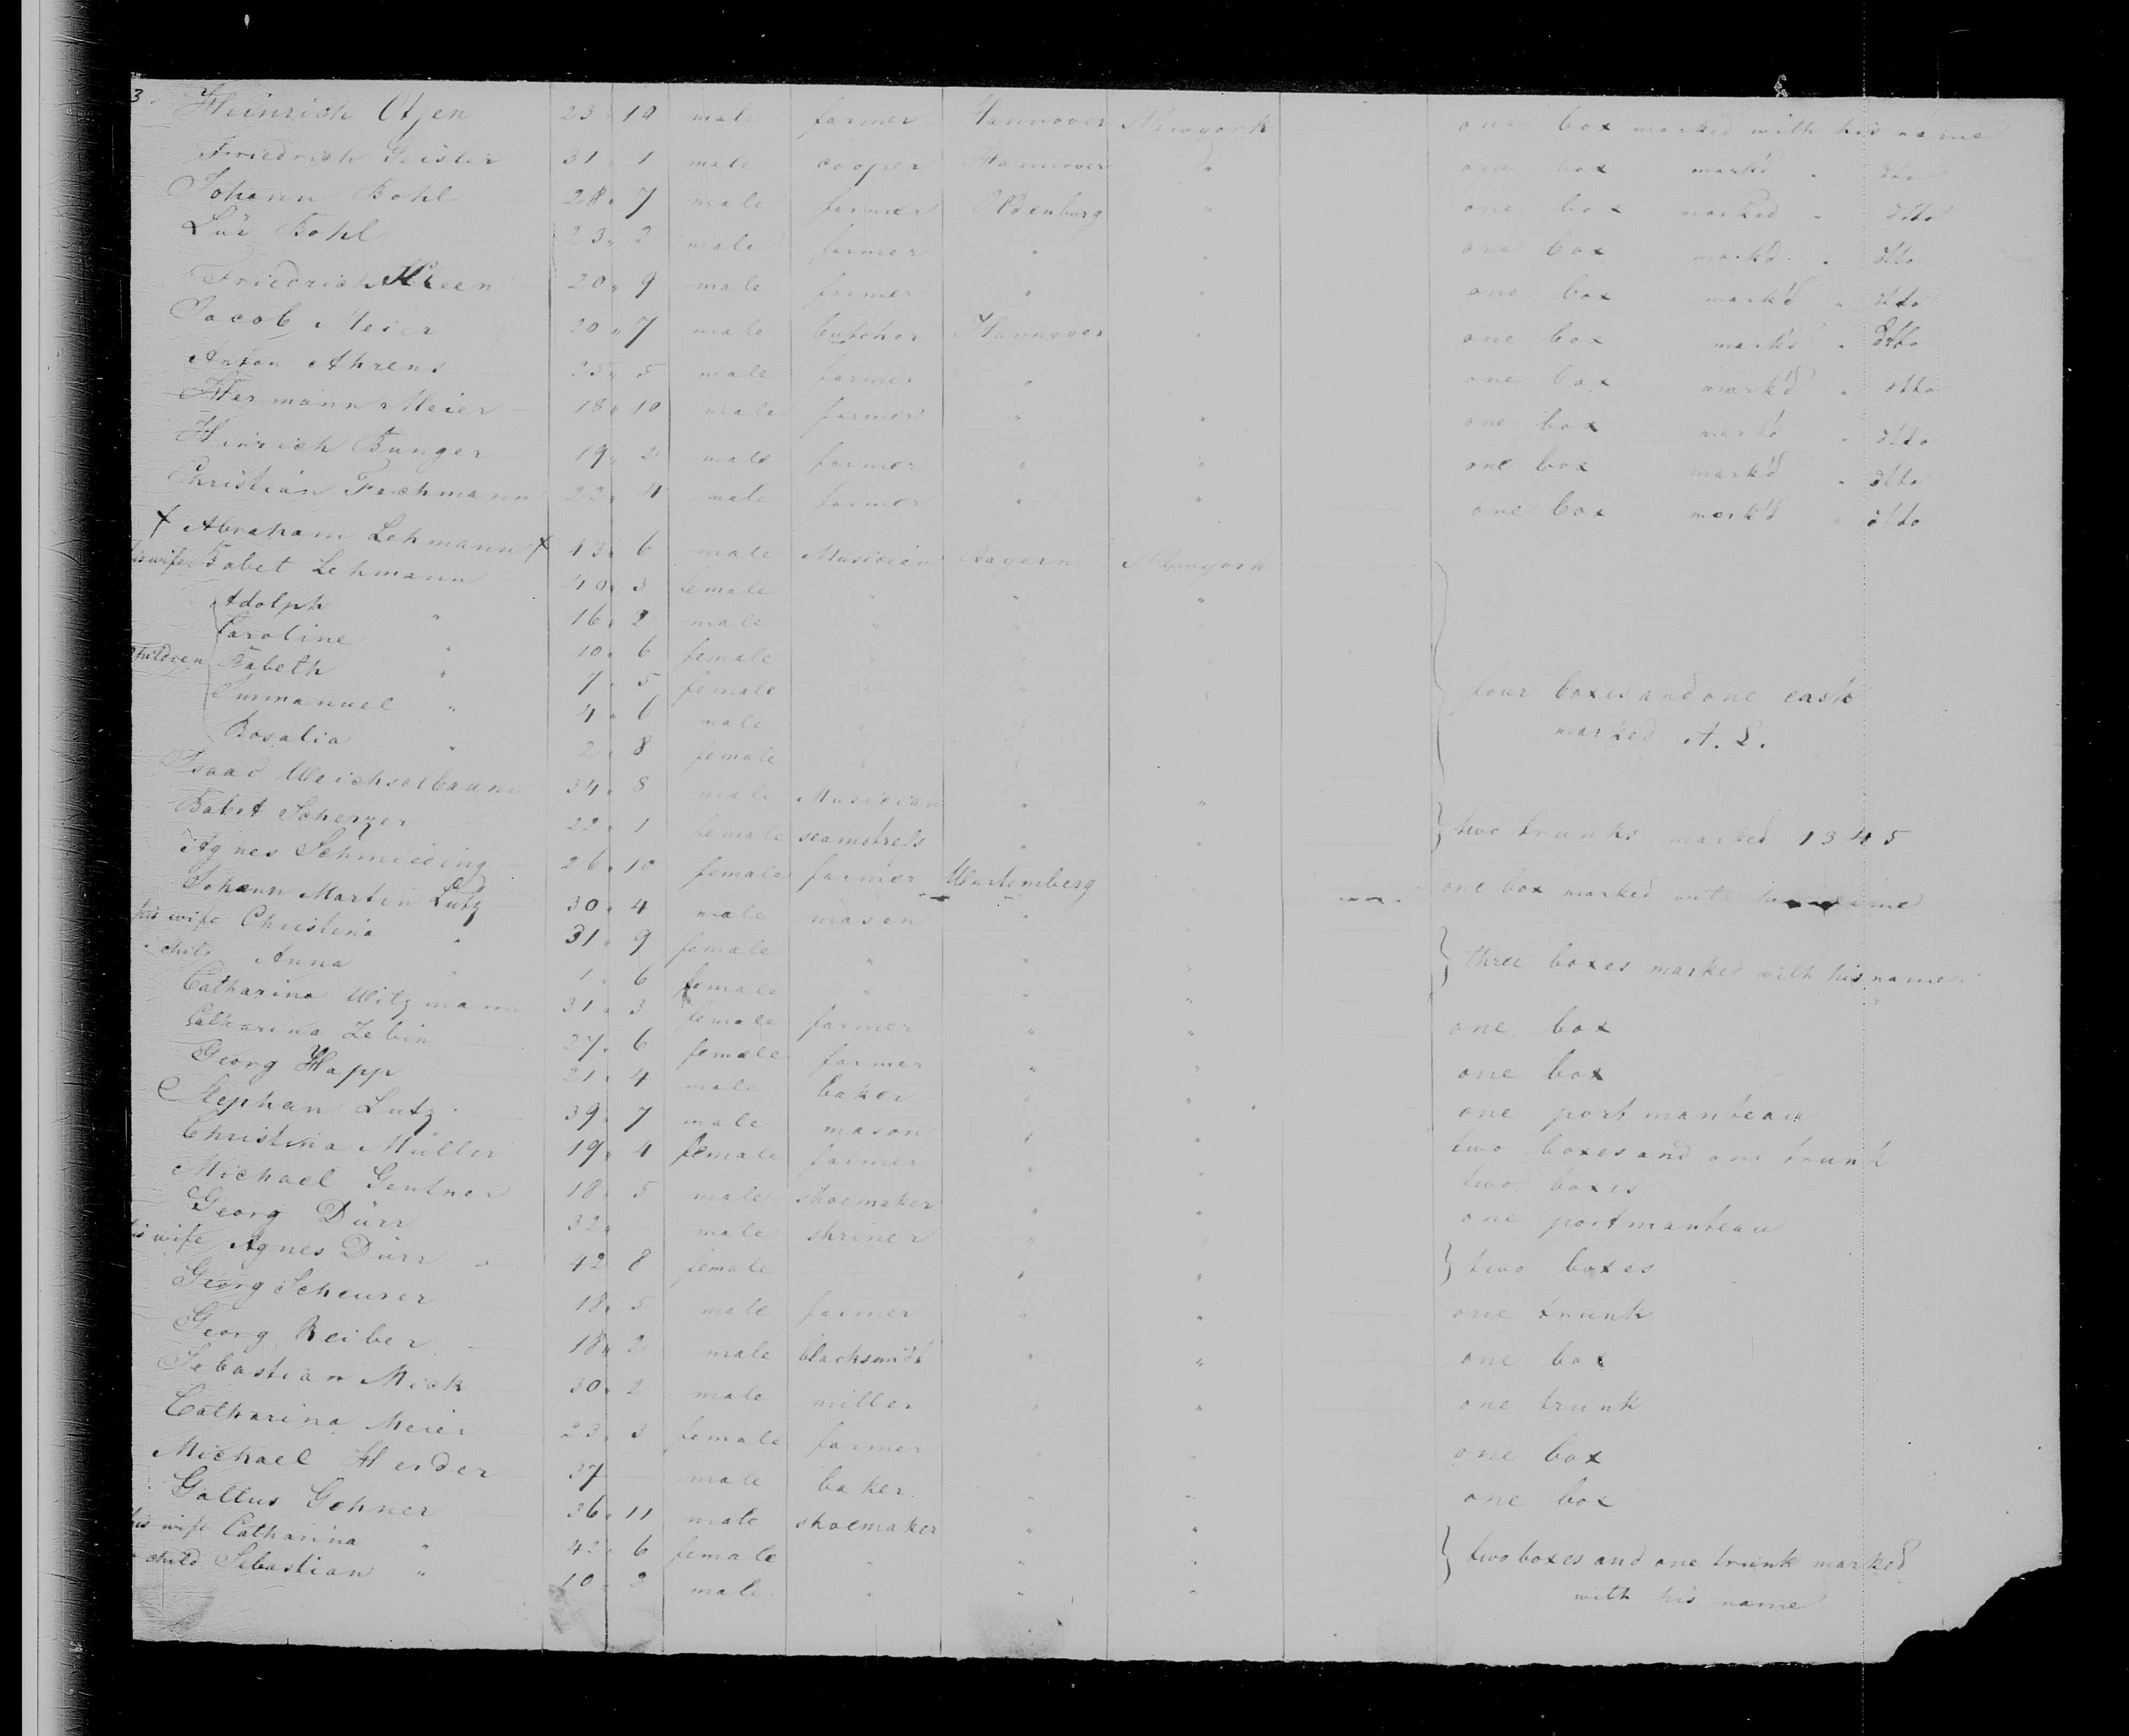 3. Heinrich Otjen 23 " 10 male farmer Hannover Newyork one box marked with his name
Friedrich Geisler 31 " 1 male cooper Hannover " one box mark'd " dto
Johann Bohl 28 " 7 male farmer Oldenburg " one box marked " dtto
Lür Bohl 23 " 2 male farmer " " one box mark'd " dtto
Friedrich Kleen 20 " 9 male farmer " " one box mark'd " dtto
Jacob Meier 20 " 7 male butcher Hannover " one box mark'd " dtto
Anton Ahrens 25 " 5 male farmer " " one box mark'd " dtto
Hermann Meier 18 " 10 male farmer " " one box mark'd " dtto
Hinrich Bunger 19 " 2 male farmer " " one box mark'd " dtto
Christian 22 " 4 male farmer " " one box mark'd " dtto
x Abraham Lehmann x 43 " 6 male Musician Bayern Newyork
his wife Babet Lehmann 40 " 3 female " " "
Adolph " 16 " 2 male " " "
Caroline " 10 " 6 female " " "
Children Babeth " 7 " 5 female " " " four boxes and one cask
Emmanuel " 4 " 6 male " " " marked A. L.
Rosalia " 2 " 8 female " " "
Isaac Weichselbaum 34 " 8 male Musician " "
Babet Scherzer 22 " 1 female seamstress " " two trunks marked 1345
Agnes Schmieding 26 " 10 female farmer Wurtemberg " one box marked with name
Johann Martin Lutz 30 " 4 male mason " "
his wife Christina " 31 " 9 female " " " three boxes marked with his name
" child Anna " 1 " 6 female " " "
Catharina Witzmann 31 " 3 female farmer " " one box
Catharina Zebin 27 " 6 female farmer " " one box
Georg Happ 21 " 4 male baker " " one portmanteau
Stephan Lutz 39 " 7 male mason " " two boxes and one trunk
Christina Müller 19 " 4 female farmer " " two boxes
Michael Gentner 18 " 5 male shoemaker " " one portmanteau
Georg Dürr 32 " male shriner " "
his wife Agnes Dürr 42 8 female " " two boxes
Georg Scheurer 18 " 5 male farmer " " one trunk
Georg Reiber 18 " 2 male blacksmidt " " one box
Sebastian Mick 30 " 2 male miller " " one trunk
Catharina Meier 23 " 3 female farmer " " one box
Michael Herder 37 male baker " " one box
Gallus Gohner 36 " 11 male shoemaker " "
his wife Catharina " 42 " 6 female " " " two boxes and one trunk marked
" child Sebastian " 10 " 2 male " " " with his name